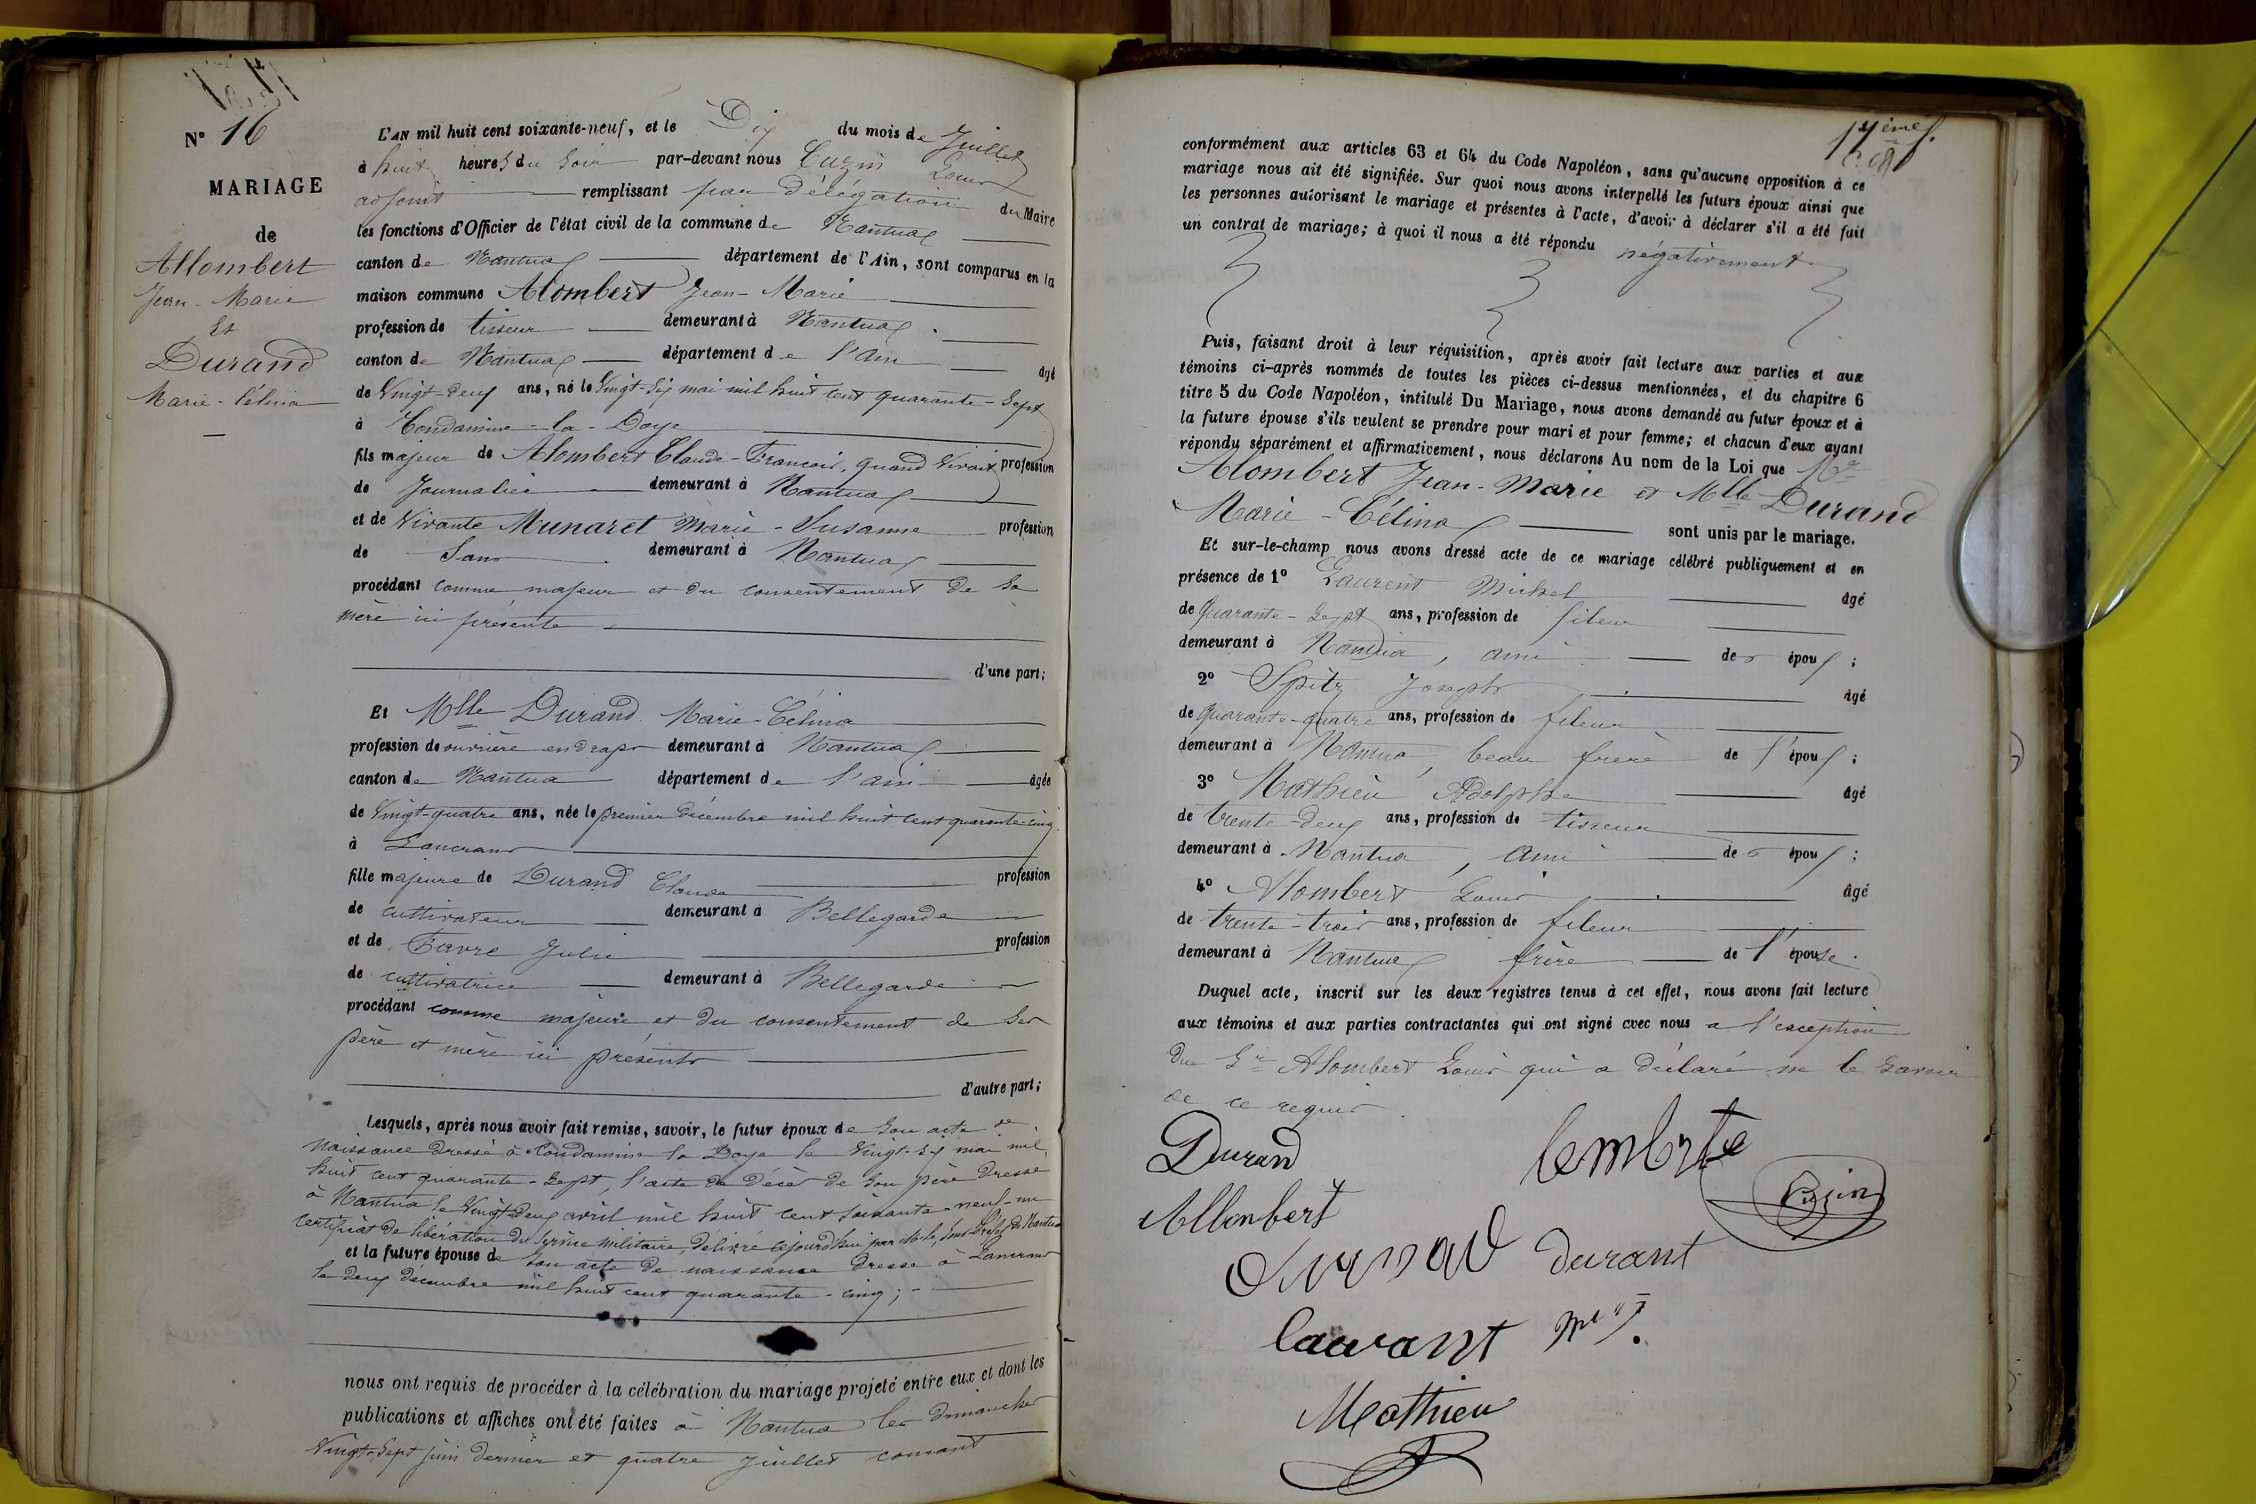 N° 16
MARIAGE
de
Allombert
Jean-Marie
Et
Durand
Marie-Célina
L'AN mil huit cent soixante-neuf, et le Dix du mois de Juillet
à huit heures du soir par-devant nous Cuzin Louis
adjoint remplissant par délégation du Maire
les fonctions d'Officier de l'état civil de la commune de Nantua
canton de Nantua département de l'Ain, sont comparus en la
maison commune Alombert Jean-Marie
profession de tisseur demeurant à Nantua
canton de Nantua département de l'Ain âgé
de Vingt-deux ans, né le Vingt-Six mai mil huit cent quarante-Sept
à Condamine-la-Doye
fils majeur de Alombert Claude-François, quand vivait profession
de Journalier demeurant à Nantua
et de Vivante Munaret Marie-Susanne profession
de Sans demeurant à Nantua
procédant comme majeur et du consentement de Sa
mère ici présente
d'une part;
Et Mlle Durand Marie-Célina
profession de ouvrière en draps demeurant à Nantua
canton de Nantua département de l'Ain âgée
de Vingt-quatre ans, née le premier décembre mil huit cent quarante-cinq
à Lancrans
fille majeure de Durand Claude profession
de cultivateur demeurant à Bellegarde
et de Favre Julie profession
de cultivatrice demeurant à Bellegarde
procédant comme majeure et du consentement de Ses
père et mère ici présents
d'autre part;
Lesquels, après nous avoir fait remise, savoir, le futur époux de Son acte de
naissance dressé à Condamine la Doye le Vingt-Six mai mil
huit cent quarante-Sept, l'acte de décès de Son père dressé
à Nantua le Vingt-deux avril mil huit cent soixante-neuf-un
certificat de libération du Service militaire, delivré cejourd'hui par Mr le Sous-Préfet de Nantua
et la future épouse de Son acte de naissance dressé à Lancrans
le deux décembre mil huit cent quarante-cinq;
nous ont requis de procéder à la célébration du mariage projeté entre eux et dont les
publications et affiches ont été faites à Nantua les dimanches
Vingt-Sept juin dernier et quatre Juillet courant
17ème f.
conformément aux articles 63 et 64 du Code Napoléon, sans qu'aucune opposition à ce
mariage nous ait été signifiée. Sur quoi nous avons interpellé les futurs époux ainsi que
les personnes autorisant le mariage et présentes à l'acte, d'avoir à déclarer s'il a été fait
un contrat de mariage; à quoi il nous a été répondu négativement
Puis, faisant droit à leur réquisition, après avoir fait lecture aux parties et aux
témoins ci-après nommés de toutes les pièces ci-dessus mentionnées, et du chapitre 6
titre 5 du Code Napoléon, intitulé Du Mariage, nous avons demandé au futur époux et à
la future épouse s'ils veulent se prendre pour mari et pour femme; et chacun d'eux ayant
répondu séparément et affirmativement, nous déclarons Au nom de la Loi que Mr
Alombert Jean-Marie et Mlle Durand
Marie-Célina sont unis par le mariage.
Et sur-le-champ nous avons dressé acte de ce mariage célébré publiquement et en
présence de 1° Laurent Michel âgé
de Quarante-Sept ans, profession de fileur
demeurant à Nantua, ami des époux;
2° Spitz Joseph âgé
de Quarante-quatre ans, profession de fileur
demeurant à Nantua, beau frère de l'époux;
3° Mathieu Adolphe âgé
de trente-deux ans, profession de tisseur
demeurant à Nantua, ami des époux;
4° Alombert Louis âgé
de trente-trois ans, profession de fileur
demeurant à Nantua frère de l'épouse.
Duquel acte, inscrit sur les deux registres tenus à cet effet, nous avons fait lecture
aux témoins et aux parties contractantes qui ont signé avec nous a l'exception
du Sr Alombert Louis qui a déclaré ne le Savoir
de ce requis.
Durand
Allonbert
Cuzin
durant
lauvant
Mathieu